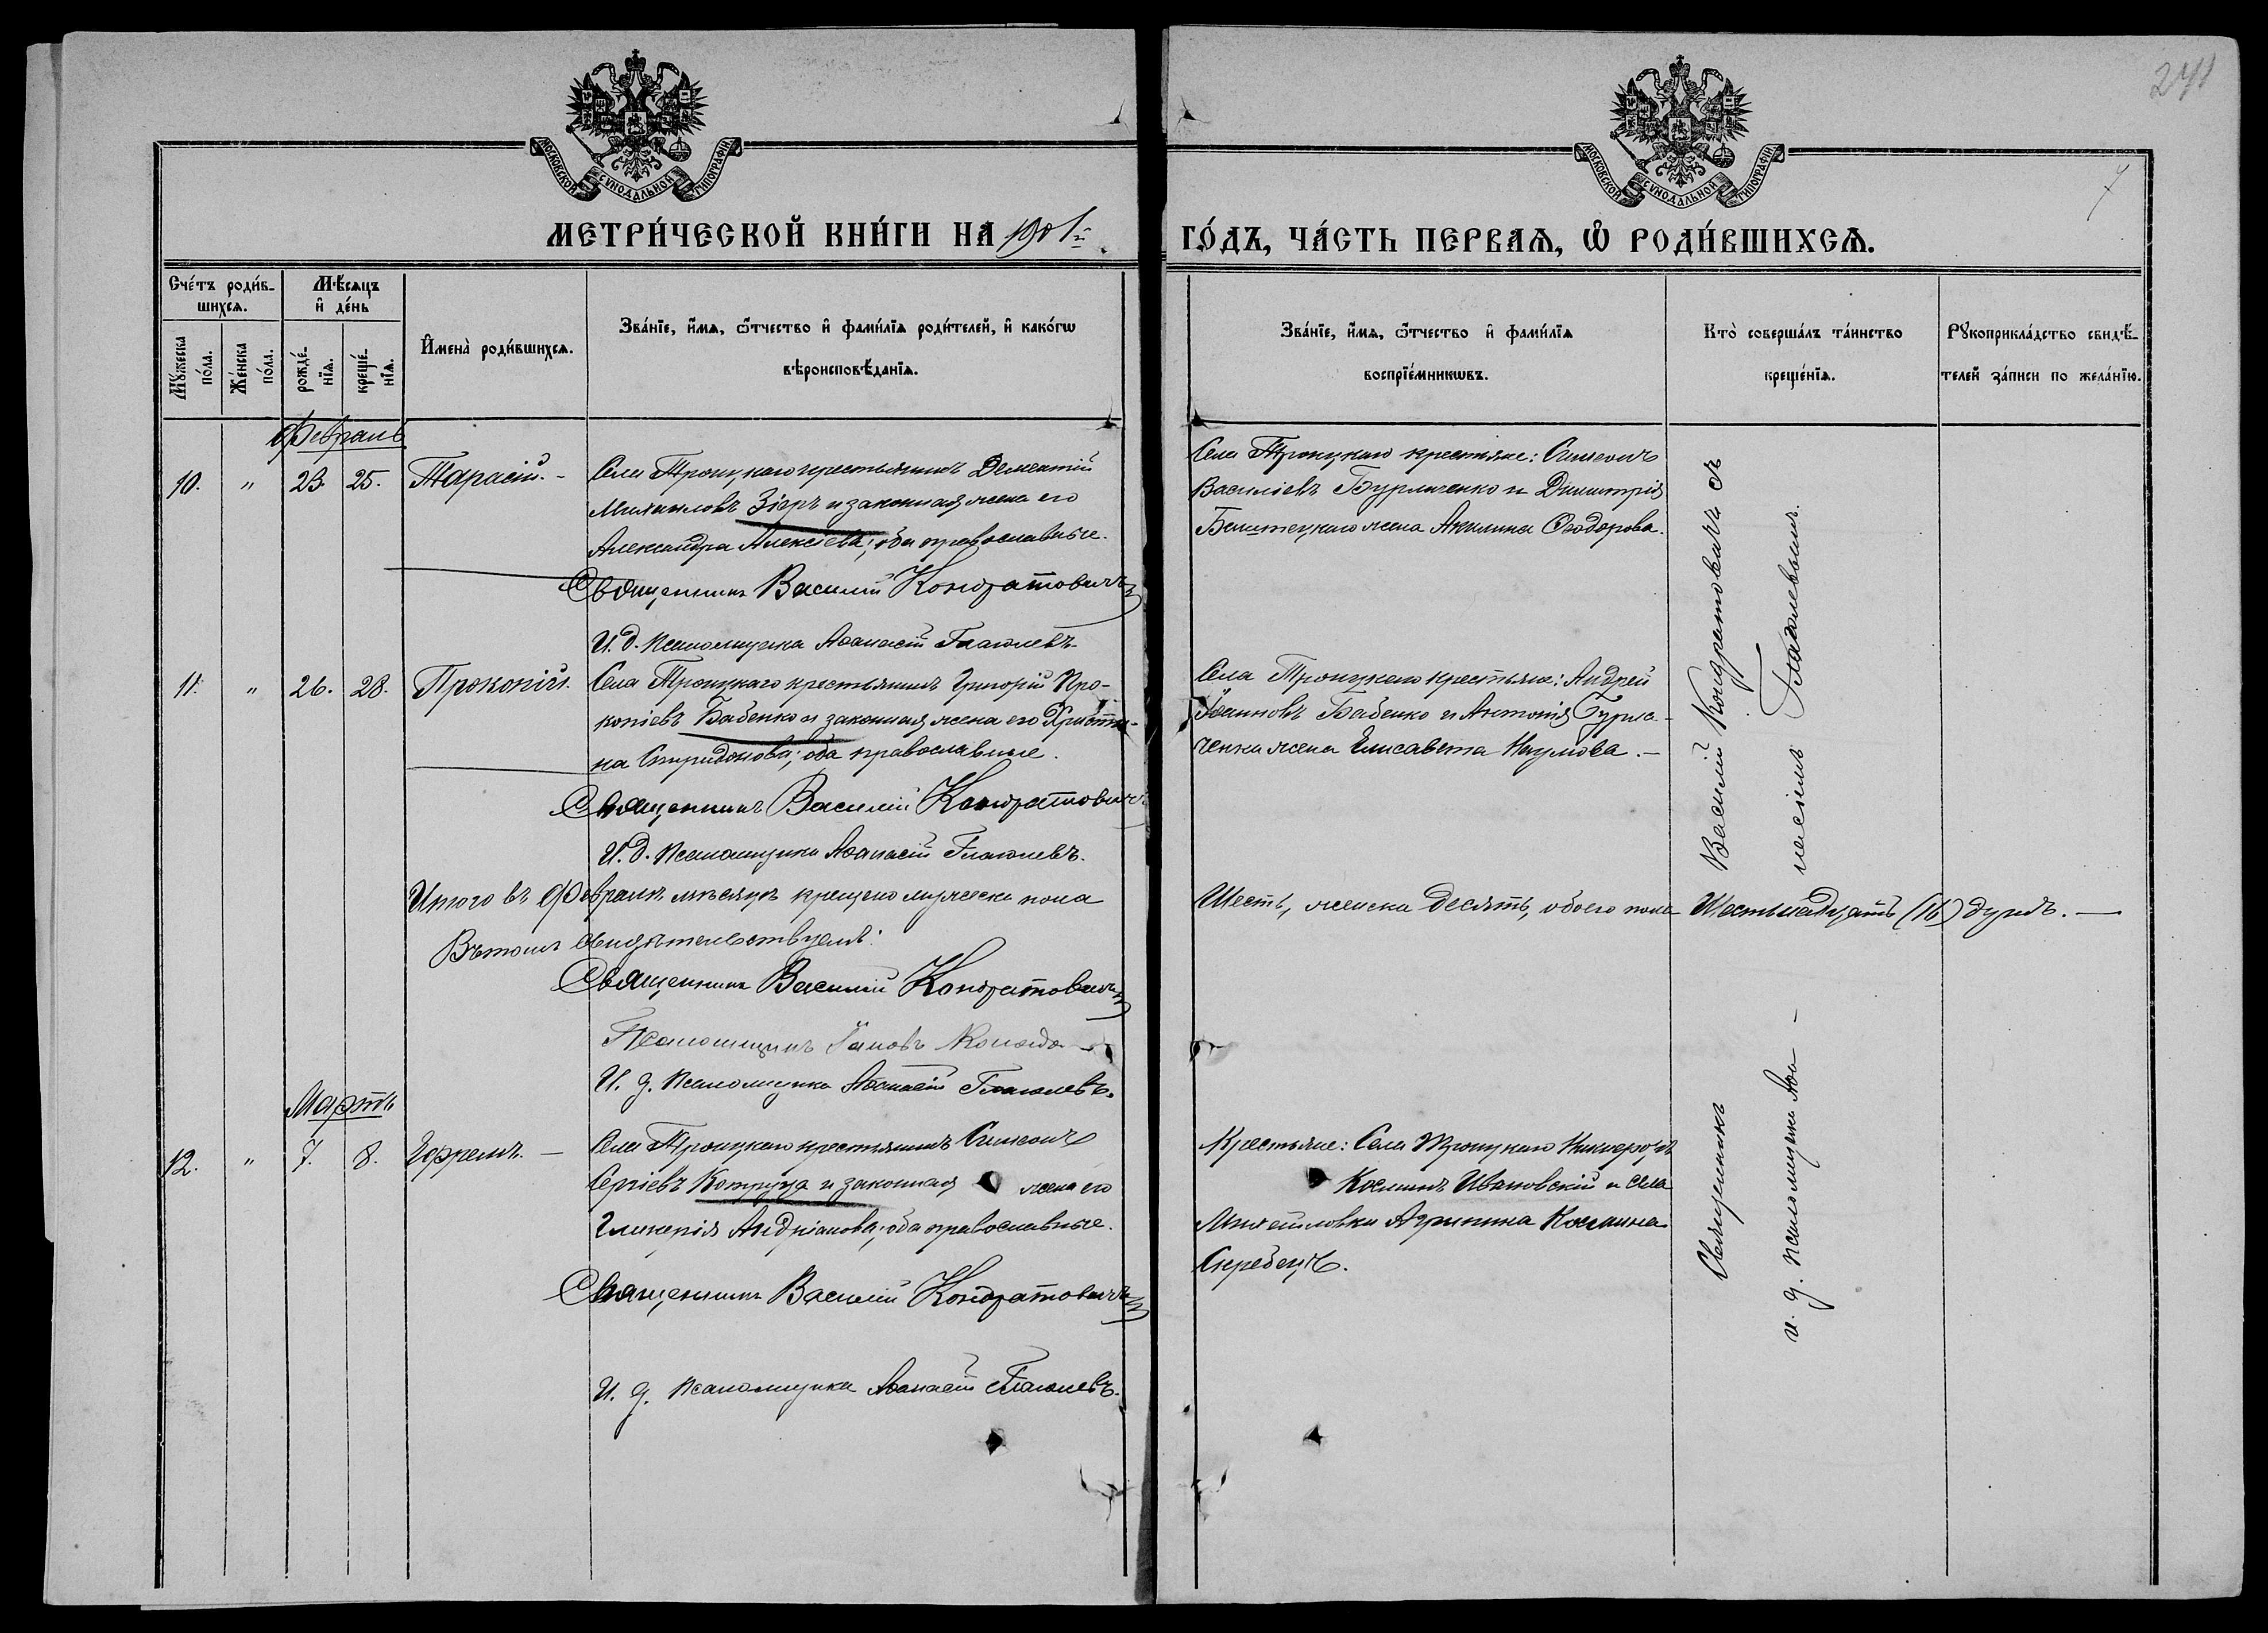 241
7
МОСКОВСКОЙ СУНОДАЛЬНОЙ ТИПОГРАФІИ
МОСКОВСКОЙ СУНОДАЛЬНОЙ ТИПОГРАФІИ
МЕТРИ́ЧЕСКОЙ КНИ́ГИ НА 1901й ГО́ДЪ, ЧА́СТЬ ПЕРВАѦ, Ѡ РОДИ́ВШИХСѦ.
Счéтъ роди́в-
шихсѧ.
Мꙋ́жеска по́ла.
Же́нска по́ла.
Мѣ́сѧцъ
и҆ де́нь
рожде́-
нїѧ.
креще́-
нїѧ.
И҆мена̀ роди́вшихсѧ.
Зва́нїе, и҆́мѧ, ѻ҆́тчество и҆ фами́лїѧ роди́телей, и҆ како́гѡ
вѣроисповѣ́данїѧ.
Зва́нїе, и҆́мѧ, ѻ҆́тчество и҆ фами́лїѧ
воспрїе́мникѡвъ.
Кто̀ соверша́лъ та́инство
креще́нїѧ.
Рꙋкоприкла́дство свидѣ́-
телей за́писи по жела́нїю.
Февраль
10. " 23. 25. Тарасій. –
Села Троицкаго крестьянинъ Дементій
Михаиловъ Зігръ и законная жена его
Александра Алексіева; оба православные.
Священникъ Василій Кондратовичъ
И. д. псаломщика Аѳанасій Глаголевъ.
Села Троицкаго крестьяне: Симеонъ
Василіевъ Бурлаченко и Димитрія
жена Акилина Ѳеодорова.
11. " 26. 28. Прокопій.
Села Троицкаго крестьянинъ Григорій Про-
копіевъ Бабенко и законная жена его Христи-
на Спиридонова; оба православные.
Священникъ Василій Кондратовичъ
И. д. псаломщика Аѳанасій Глаголевъ.
Села Троицкаго крестьяне: Андрей
Іоанновъ Бабенко и Антонія Бурла-
ченка жена Елисавета Наумова. –
Итого въ Февралѣ мѣсяцѣ крещено мужеска пола
Шесть, женска десять, обоего пола Шестьнадцать (16) душъ. –
Въ томъ свидѣтельствуемъ:
Священникъ Василій Кондратовичъ
Псаломщикъ Іаковъ
И. д. псаломщика Аѳанасій Глаголевъ.
Мартъ
12. " 7. 8. Ефремъ. –
Села Троицкаго крестьянинъ Симеонъ
Сергіевъ Котруца и законная жена его
Гликерія Андріанова; оба православные.
Священникъ Василій Кондратовичъ
И. д. псаломщика Аѳанасій Глаголевъ.
Крестьяне: Села Троицкаго Никифоръ
Косминъ Ивановскій и села
Михайловки Агрипина Космина
Скребецъ.
Священникъ Василій Кондратовичъ съ
и. д. псаломщика Аѳа-
насіемъ Глаголевымъ.